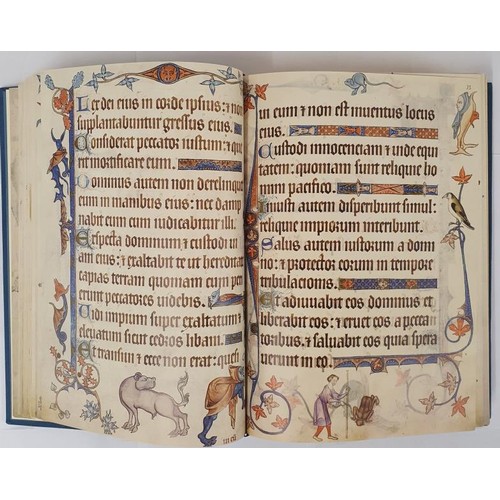 Lex dei eius in corde ipsius: ⁊ non
supplantabuntur gressus eius.
Considerat peccator iustum: ⁊ que
rit mortificare eum.
Dominus autem non derelinqu
eum in manibus eius: nec damp
nabit eum cum iudicabitur illi.
Expecta dominum ⁊ custodi ui
am eius: ⁊ exaltabit te ut heredita
capias terram quoniam cum peri
erunt peccatores uidebis.
Uidi impium super exaltatum ⁊
eleuatum sicut cedros libani.
Et transiui ⁊ ecce non erat: quesi
ui eum ⁊ non est inuentus locus
eius.
Custodi innocenciam ⁊ uide equi
tatem: quoniam sunt reliquie ho
mini pacifico.
Iniusti autem disperibunt simul:
reliquie impiorum interibunt.
Salus autem iustorum a domi
no: ⁊ protector eorum in tempore
tribulacionis.
Et adiuuabit eos dominus et
liberabit eos: ⁊ eruet eos a pecca
toribus, ⁊ saluabit eos quia spera
uerunt in eo.